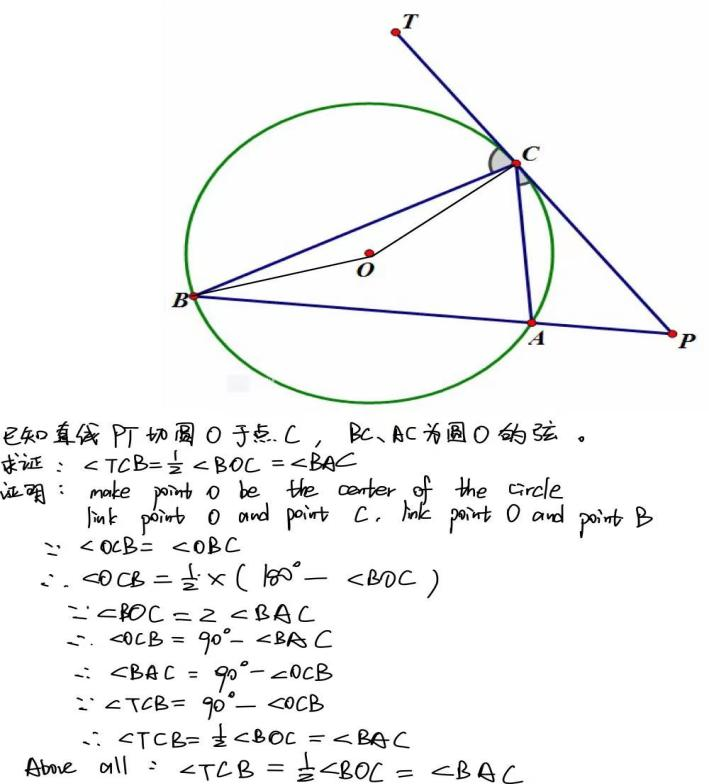 T
C
O
B
A
P
已知直线 PT 切圆 O 于点 C，BC、AC 为圆 O 的弦。
求证：∠TCB=½∠BOC=∠BAC
证明：make point O be the center of the circle
link point O and point C. link point O and point B
∵ ∠OCB=∠OBC
∴ ∠OCB=½×(180°-∠BOC)
∵ ∠BOC=2∠BAC
∴ ∠OCB=90°-∠BAC
∴ ∠BAC=90°-∠OCB
∵ ∠TCB=90°-∠OCB
∴ ∠TCB=½∠BOC=∠BAC
Above all：∠TCB=½∠BOC=∠BAC